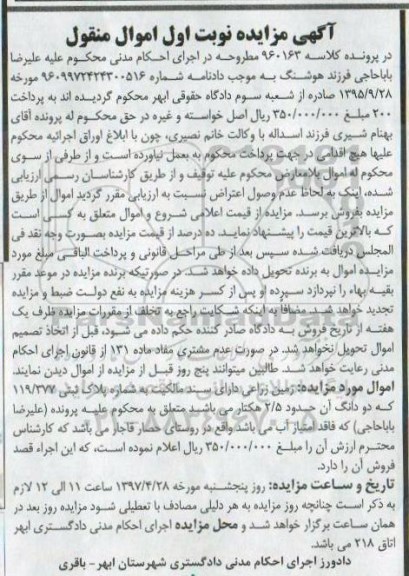 آگهی مزایده نوبت اول اموال منقول
در پرونده کلاسه ۹۶۰۱۶۳ مطروحه در اجرای احکام مدنی محکوم علیه علیرضا
باباحاجی فرزند هوشنگ به موجب دادنامه شماره ۹۶۰۹۹۷۲۴۲۴۳۰۰۵۱۶ مورخه
۱۳۹۵/۹/۲۸ صادره از شعبه سوم دادگاه حقوقی ابهر محکوم گردیده اند به پرداخت
۲۰۰ مبلغ ۳۵۰/۰۰۰/۰۰۰ ریال اصل خواسته و غیره در حق محکوم له پرونده آقای
بهنام شیری فرزند اسداله با وکالت خانم نصیری، چون با ابلاغ اوراق اجرائیه محکوم
علیها هیچ اقدامی در جهت پرداخت محکوم به بعمل نیاورده است و از طرفی از سوی
محکوم له اموال بلامعارض محکوم علیه توقیف و از طریق کارشناسان رسمی ارزیابی
شده، اینک به لحاظ عدم وصول اعتراض نسبت به ارزیابی مقرر گردید اموال از طریق
مزایده بفروش برسد. مزایده از قیمت اعلامی شروع و اموال متعلق به کسی است
که بالاترین قیمت را پیشنهاد نماید. ده درصد از قیمت مزایده بصورت وجه نقد فی
المجلس دریافت شده سپس بعد از طی مراحل قانونی و پرداخت الباقی مبلغ مورد
مزایده اموال به برنده تحویل داده خواهد شد. در صورتیکه برنده مزایده در موعد مقرر
بقیه بهاء را نپردازد سپرده او پس از کسر هزینه مزایده به نفع دولت ضبط و مزایده
تجدید خواهد شد. مضافاً به اینکه شکایت راجع به تخلف از مقررات مزایده ظرف یک
هفته از تاریخ فروش به دادگاه صادر کننده حکم داده می شود، قبل از اتخاذ تصمیم
اموال تحویل نخواهد شد. در صورت عدم مشتری مفاد ماده ۱۳۱ از قانون اجرای احکام
مدنی رعایت خواهد شد. طالبین میتوانند پنج روز قبل از مزایده از اموال دیدن نمایند.
اموال مورد مزایده: زمین زراعی دارای سند مالکیت به شماره پلاک ثبتی ۱۱۹/۳۷۷
که دو دانگ آن حدود ۲/۵ هکتار می باشید متعلق به محکوم علیه پرونده (علیرضا
باباحاجی) که فاقد امتیاز آب می باشد واقع در روستای حصار قاجار می باشد که کارشناس
محترم ارزش آن را مبلغ ۳۵۰/۰۰۰/۰۰۰ ریال اعلام نموده است، که این اجراء قصد
فروش آن را دارد.
تاریخ و ساعت مزایده: روز پنجشنبه مورخه ۱۳۹۷/۴/۲۸ ساعت ۱۱ الی ۱۲ لازم
به ذکر است چنانچه روز مزایده به هر دلیلی مصادف با تعطیلی شود مزایده روز بعد در
همان ساعت برگزار خواهد شد و محل مزایده اجرای احکام مدنی دادگستری ابهر
اتاق ۲۱۸ می باشد.
دادورز اجرای احکام مدنی دادگستری شهرستان ابهر - باقری